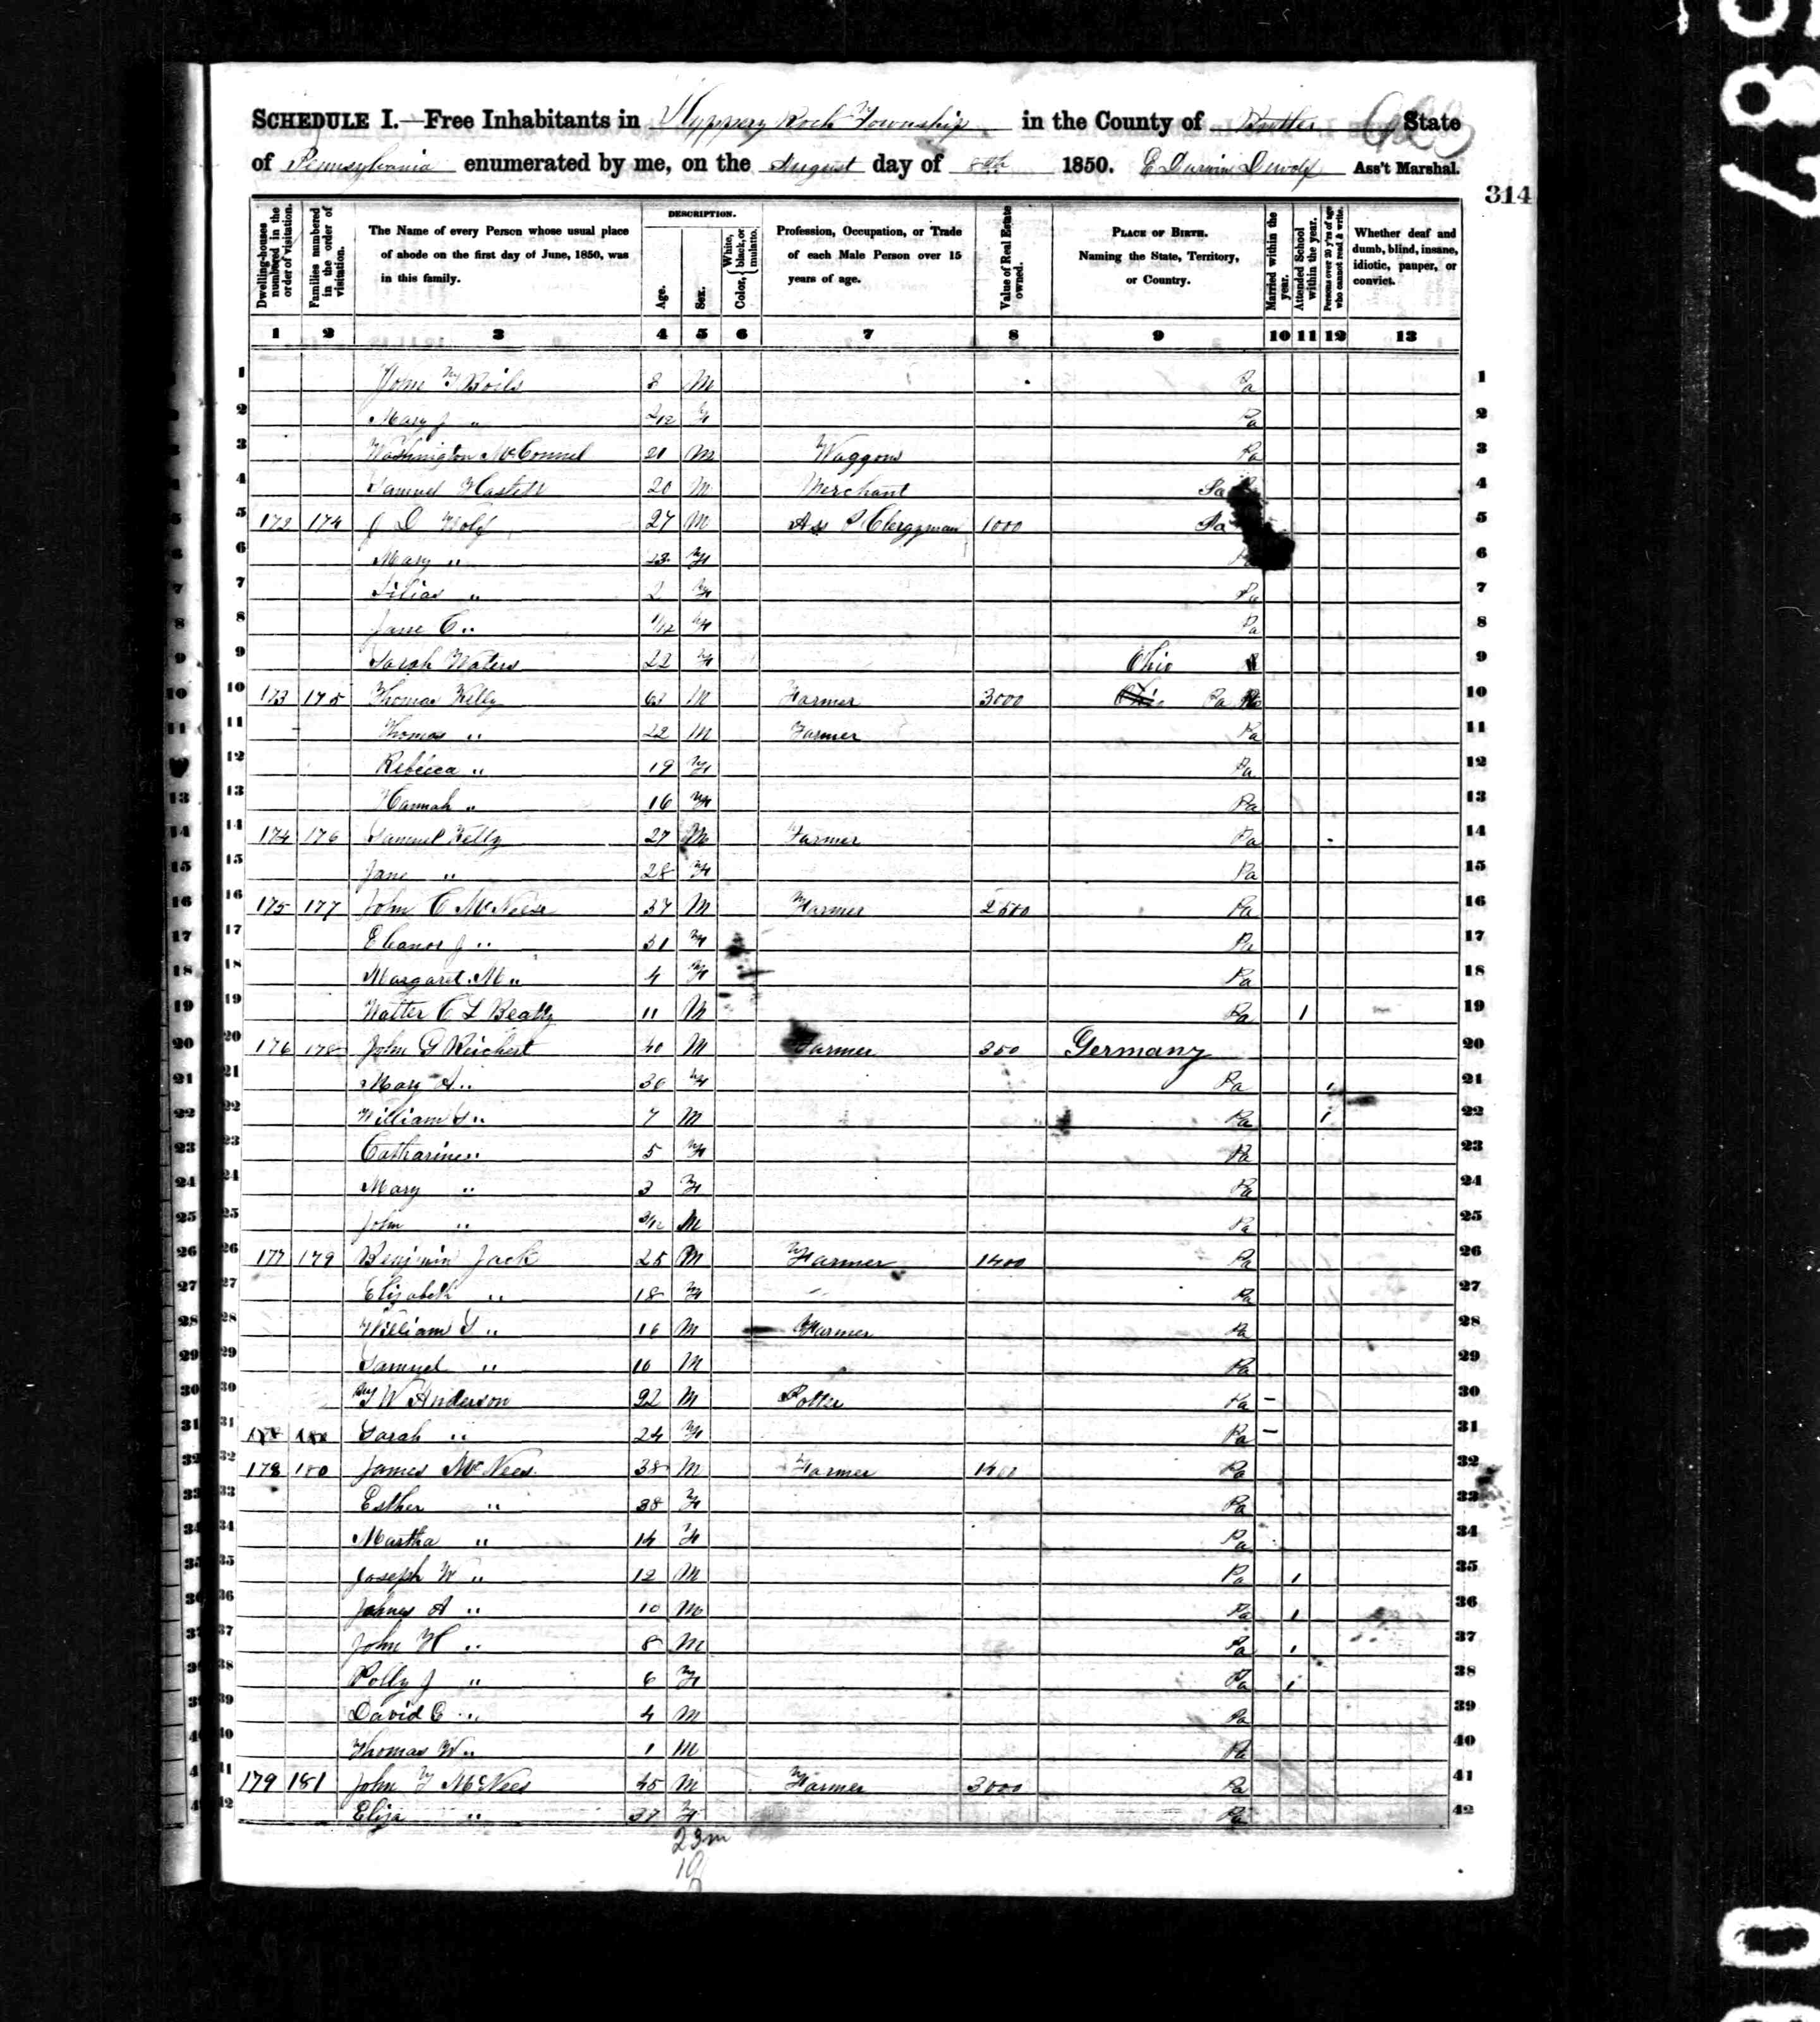 SCHEDULE I.—Free Inhabitants in Slyppery Rock Township in the County of Butler State
of Pennsylvania enumerated by me, on the August day of 8th 1850. E Darwin Dewolf Ass't Marshal.
314
Dwelling-houses numbered in the order of visitation.
Families numbered in the order of visitation.
The Name of every Person whose usual place of abode on the first day of June, 1850, was in this family.
DESCRIPTION.
Age.
Sex.
Color, { White, black, or mulatto.
Profession, Occupation, or Trade of each Male Person over 15 years of age.
Value of Real Estate owned.
PLACE OF BIRTH. Naming the State, Territory, or Country.
Married within the year.
Attended School within the year.
Persons over 20 y'rs of age who cannot read & write.
Whether deaf and dumb, blind, insane, idiotic, pauper, or convict.
1 2 3 4 5 6 7 8 9 10 11 12 13
1 John F Boils 8 M Pa 1
2 Mary J " 2/12 F Pa 2
3 Washington McConnel 21 M Waggon Pa 3
4 Samuel 20 M Merchant Pa 4
5 172 174 J D Wolf 27 M Ass P Clergyman 1000 Pa 5
6 Mary " 23 F Pa 6
7 Lilias " 2 F Pa 7
8 Jane C " 1/12 F Pa 8
9 Sarah Waters 22 F Ohio 9
10 173 175 Thomas Kelly 63 M Farmer 3000 Ohio Pa Pa 10
11 Thomas " 22 M Farmer Pa 11
12 Rebecca " 19 F Pa 12
13 Hannah " 16 F Pa 13
14 174 176 Samuel Kelly 27 M Farmer Pa 14
15 Jane " 28 F Pa 15
16 175 177 John C McNeese 37 M Farmer 2500 Pa 16
17 Eleanor J " 31 F Pa 17
18 Margaret M " 4 F Pa 18
19 Walter C L Beatty 11 M Pa 1 19
20 176 178 John G Reichert 40 M Farmer 350 Germany 20
21 Mary A " 30 F Pa 1 21
22 William S " 7 M Pa 1 22
23 Catharine " 5 F Pa 23
24 Mary " 3 F Pa 24
25 John " 3/12 M Pa 25
26 177 179 Benjamin Jack 25 M Farmer 1400 Pa 26
27 Elizabeth " 18 F Pa 27
28 William S " 16 M Farmer Pa 28
29 Samuel " 10 M Pa 29
30 F W Anderson 22 M Potter Pa – 30
31 Sarah " 24 F Pa – 31
32 178 180 James McNees 38 M Farmer 1400 Pa 32
33 Esther " 38 F Pa 33
34 Martha " 14 F Pa 34
35 Joseph W " 12 M Pa 1 35
36 James A " 10 M Pa 1 36
37 John H " 8 M Pa 1 37
38 Polly J " 6 F Pa 1 38
39 David C " 4 M Pa 39
40 Thomas W " 1 M Pa 40
41 179 181 John F McNees 45 M Farmer 3000 Pa 41
42 Eliza " 37 F Pa 42
23 m
19